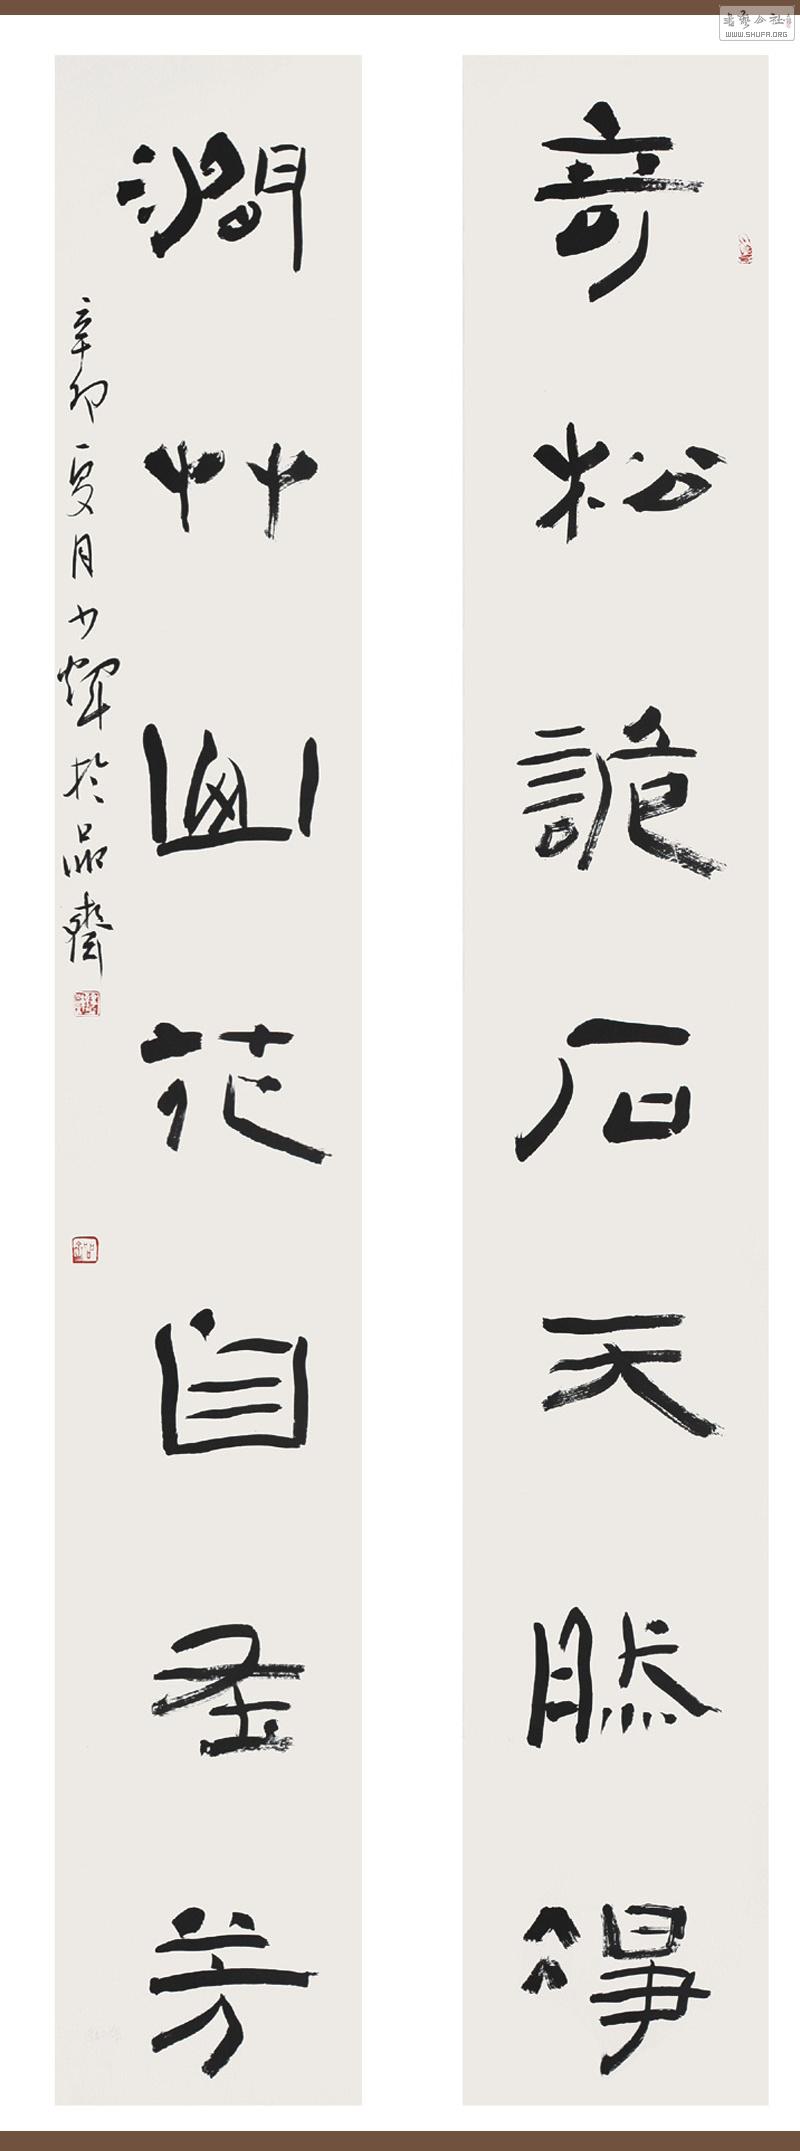 奇松詭石天然得
澗艸幽花自在芳
辛卯夏月少輝於品齋
書藝公社
WWW.SHUFA.ORG